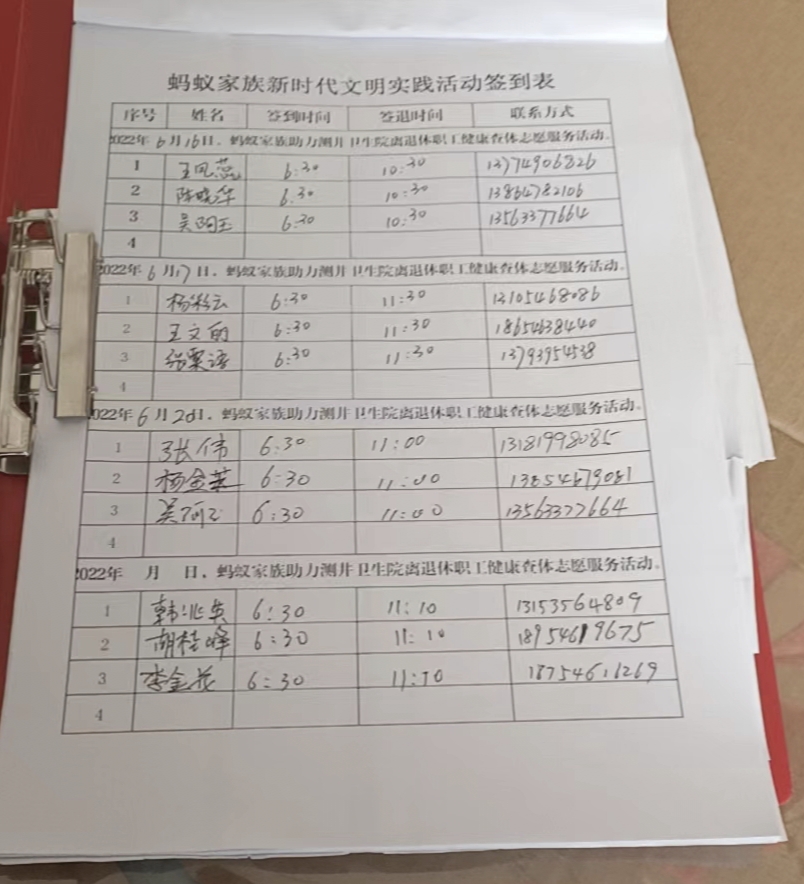 蚂蚁家族新时代文明实践活动签到表
序号 姓名 签到时间 签退时间 联系方式
2022年6月16日，蚂蚁家族助力测井卫生院离退休职工健康查体志愿服务活动。
1 王凤蕊 6:30 10:30 13774906826
2 陈晓华 6:30 10:30 13864782106
3 吴阿玉 6:30 10:30 13563377664
4
2022年6月17日，蚂蚁家族助力测井卫生院离退休职工健康查体志愿服务活动。
1 杨彩云 6:30 11:30 13105468086
2 王文丽 6:30 11:30 18654638440
3 张 6:30 11:30 13793954538
4
2022年6月20日，蚂蚁家族助力测井卫生院离退休职工健康查体志愿服务活动。
1 张伟 6:30 11:00 13181998085
2 杨金英 6:30 11:00 13854679081
3 吴阿玉 6:30 11:00 13563377664
4
2022年 月 日，蚂蚁家族助力测井卫生院离退休职工健康查体志愿服务活动。
1 韩兆英 6:30 11:10 13153564809
2 胡桂峰 6:30 11:10 18954619675
3 李金花 6:30 11:10 18754611269
4